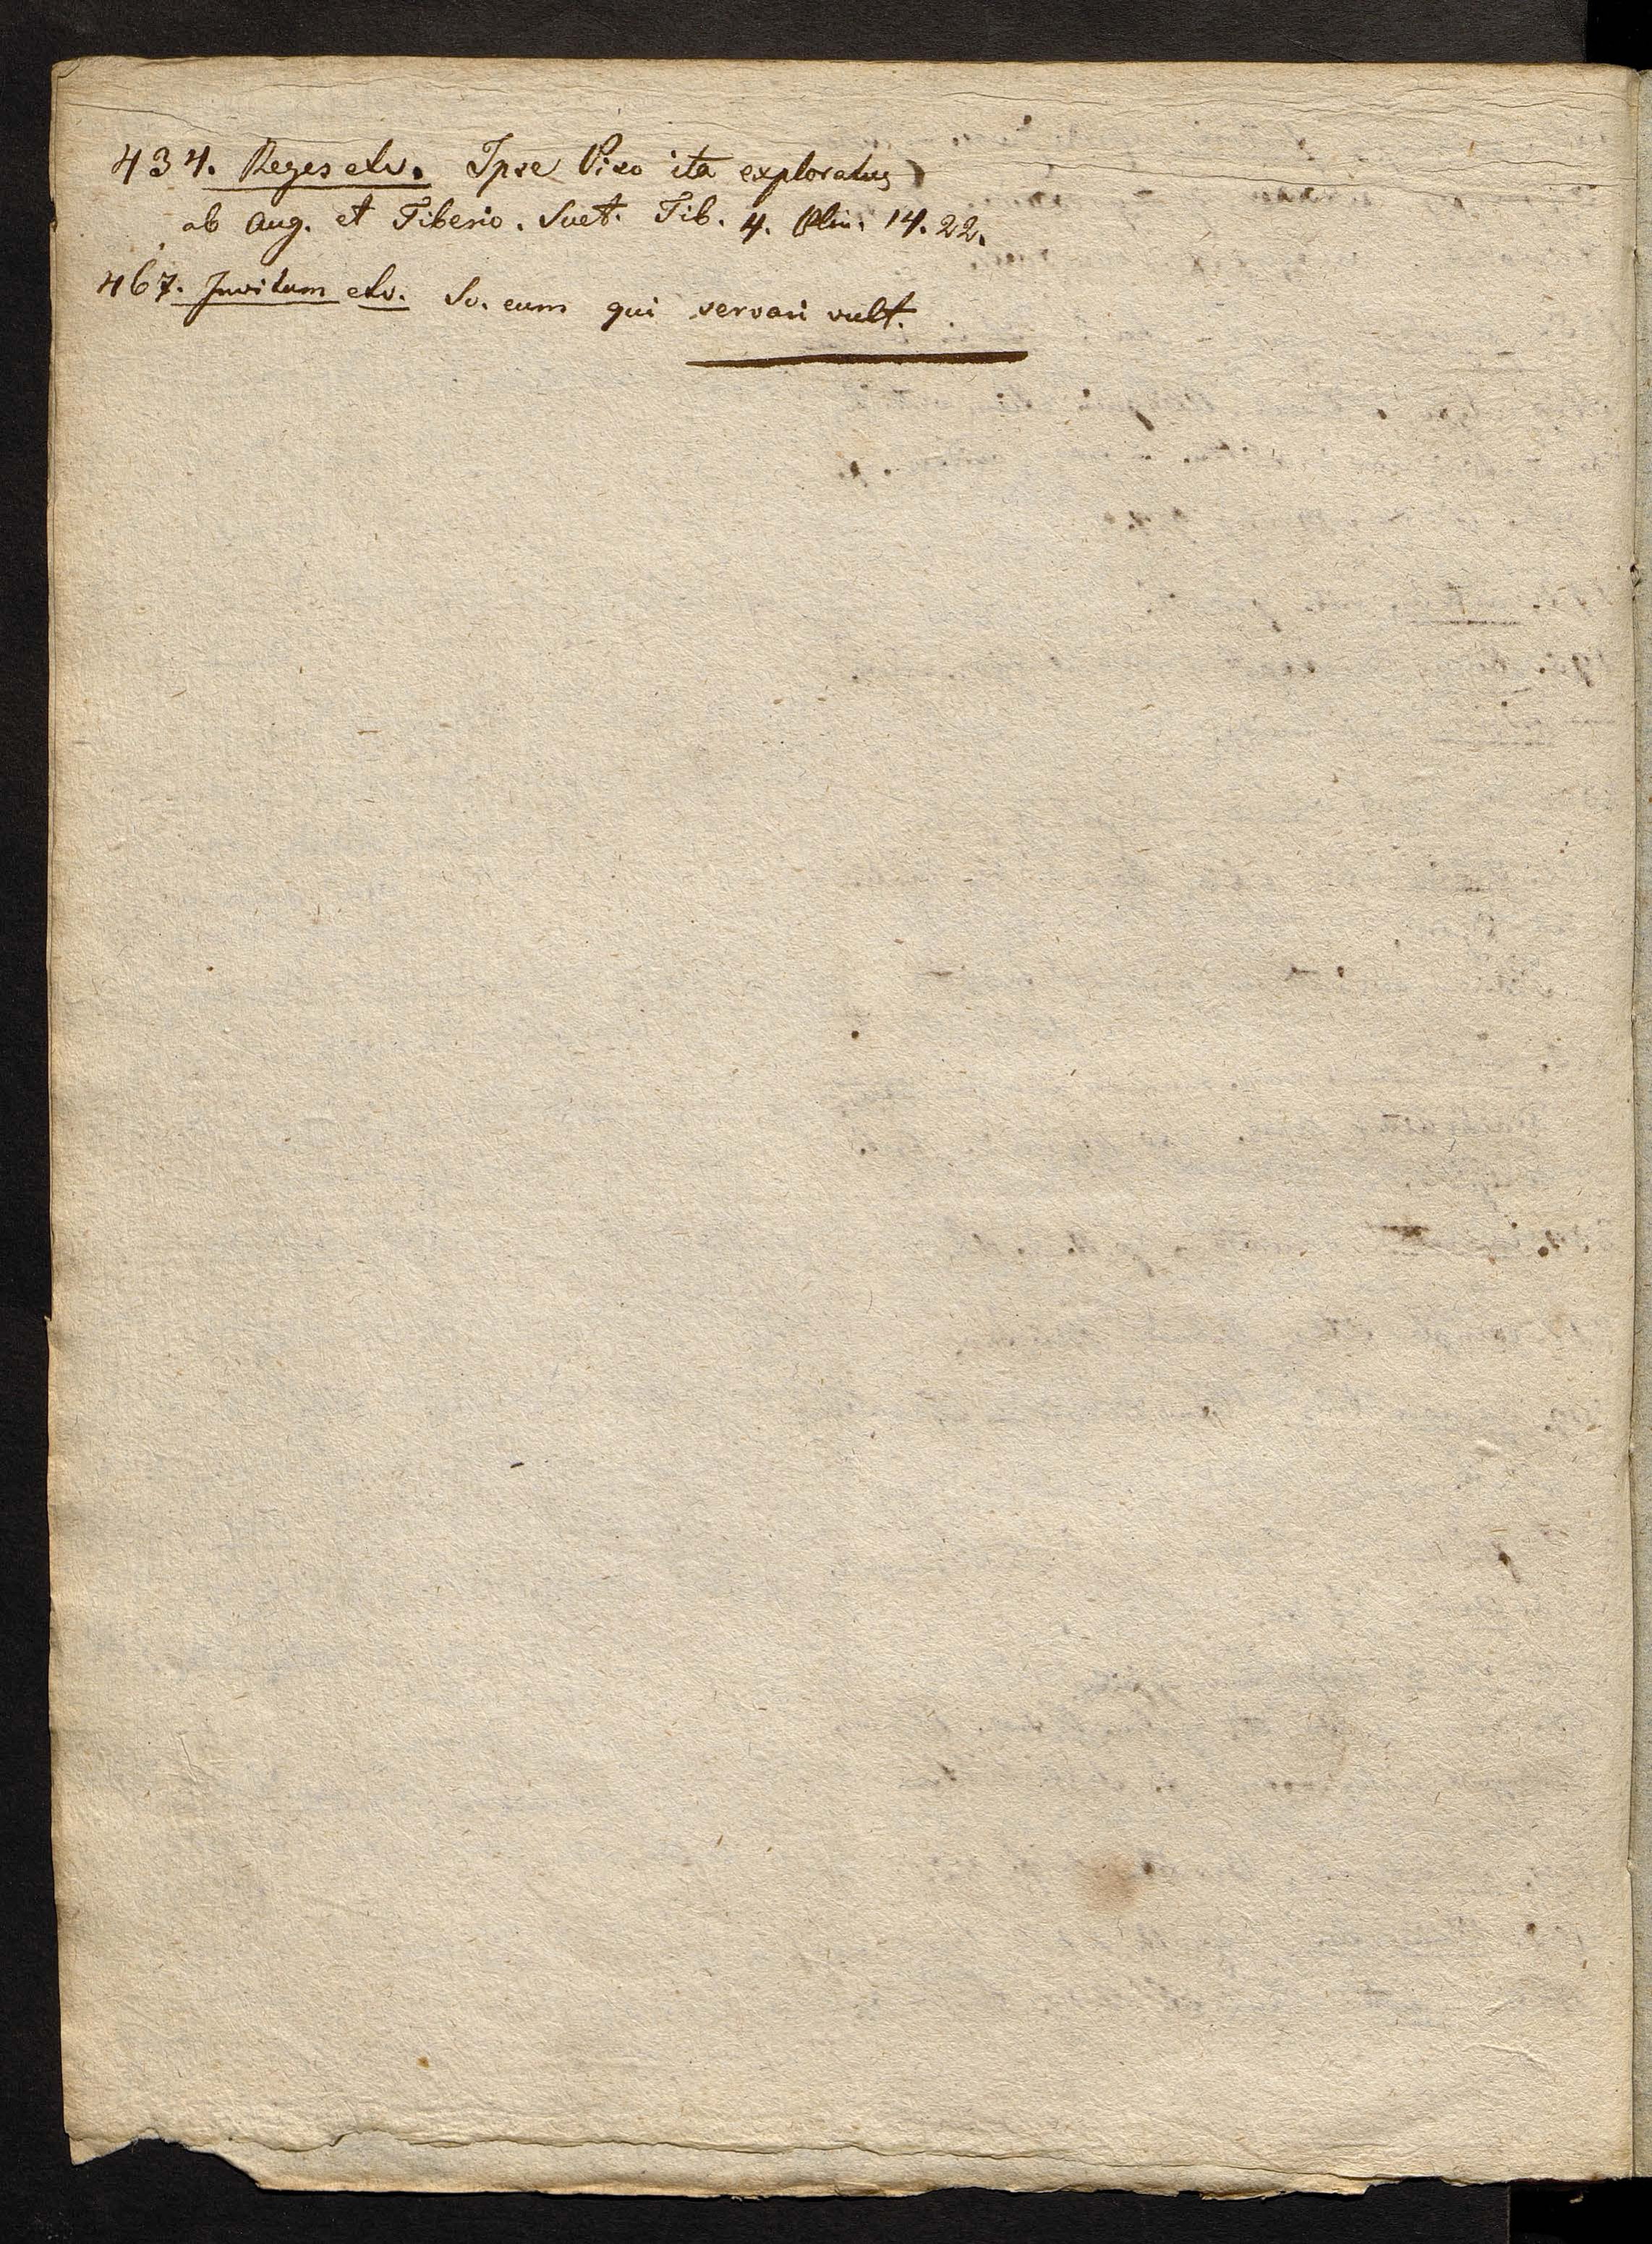 434. Reges etc. Ipse Piso ita exploratus
ab Aug. et Tiberio. Suet. Tib. 4. Plin. 14. 22.
467. Invitum etc. Sc. eum qui servari vult.